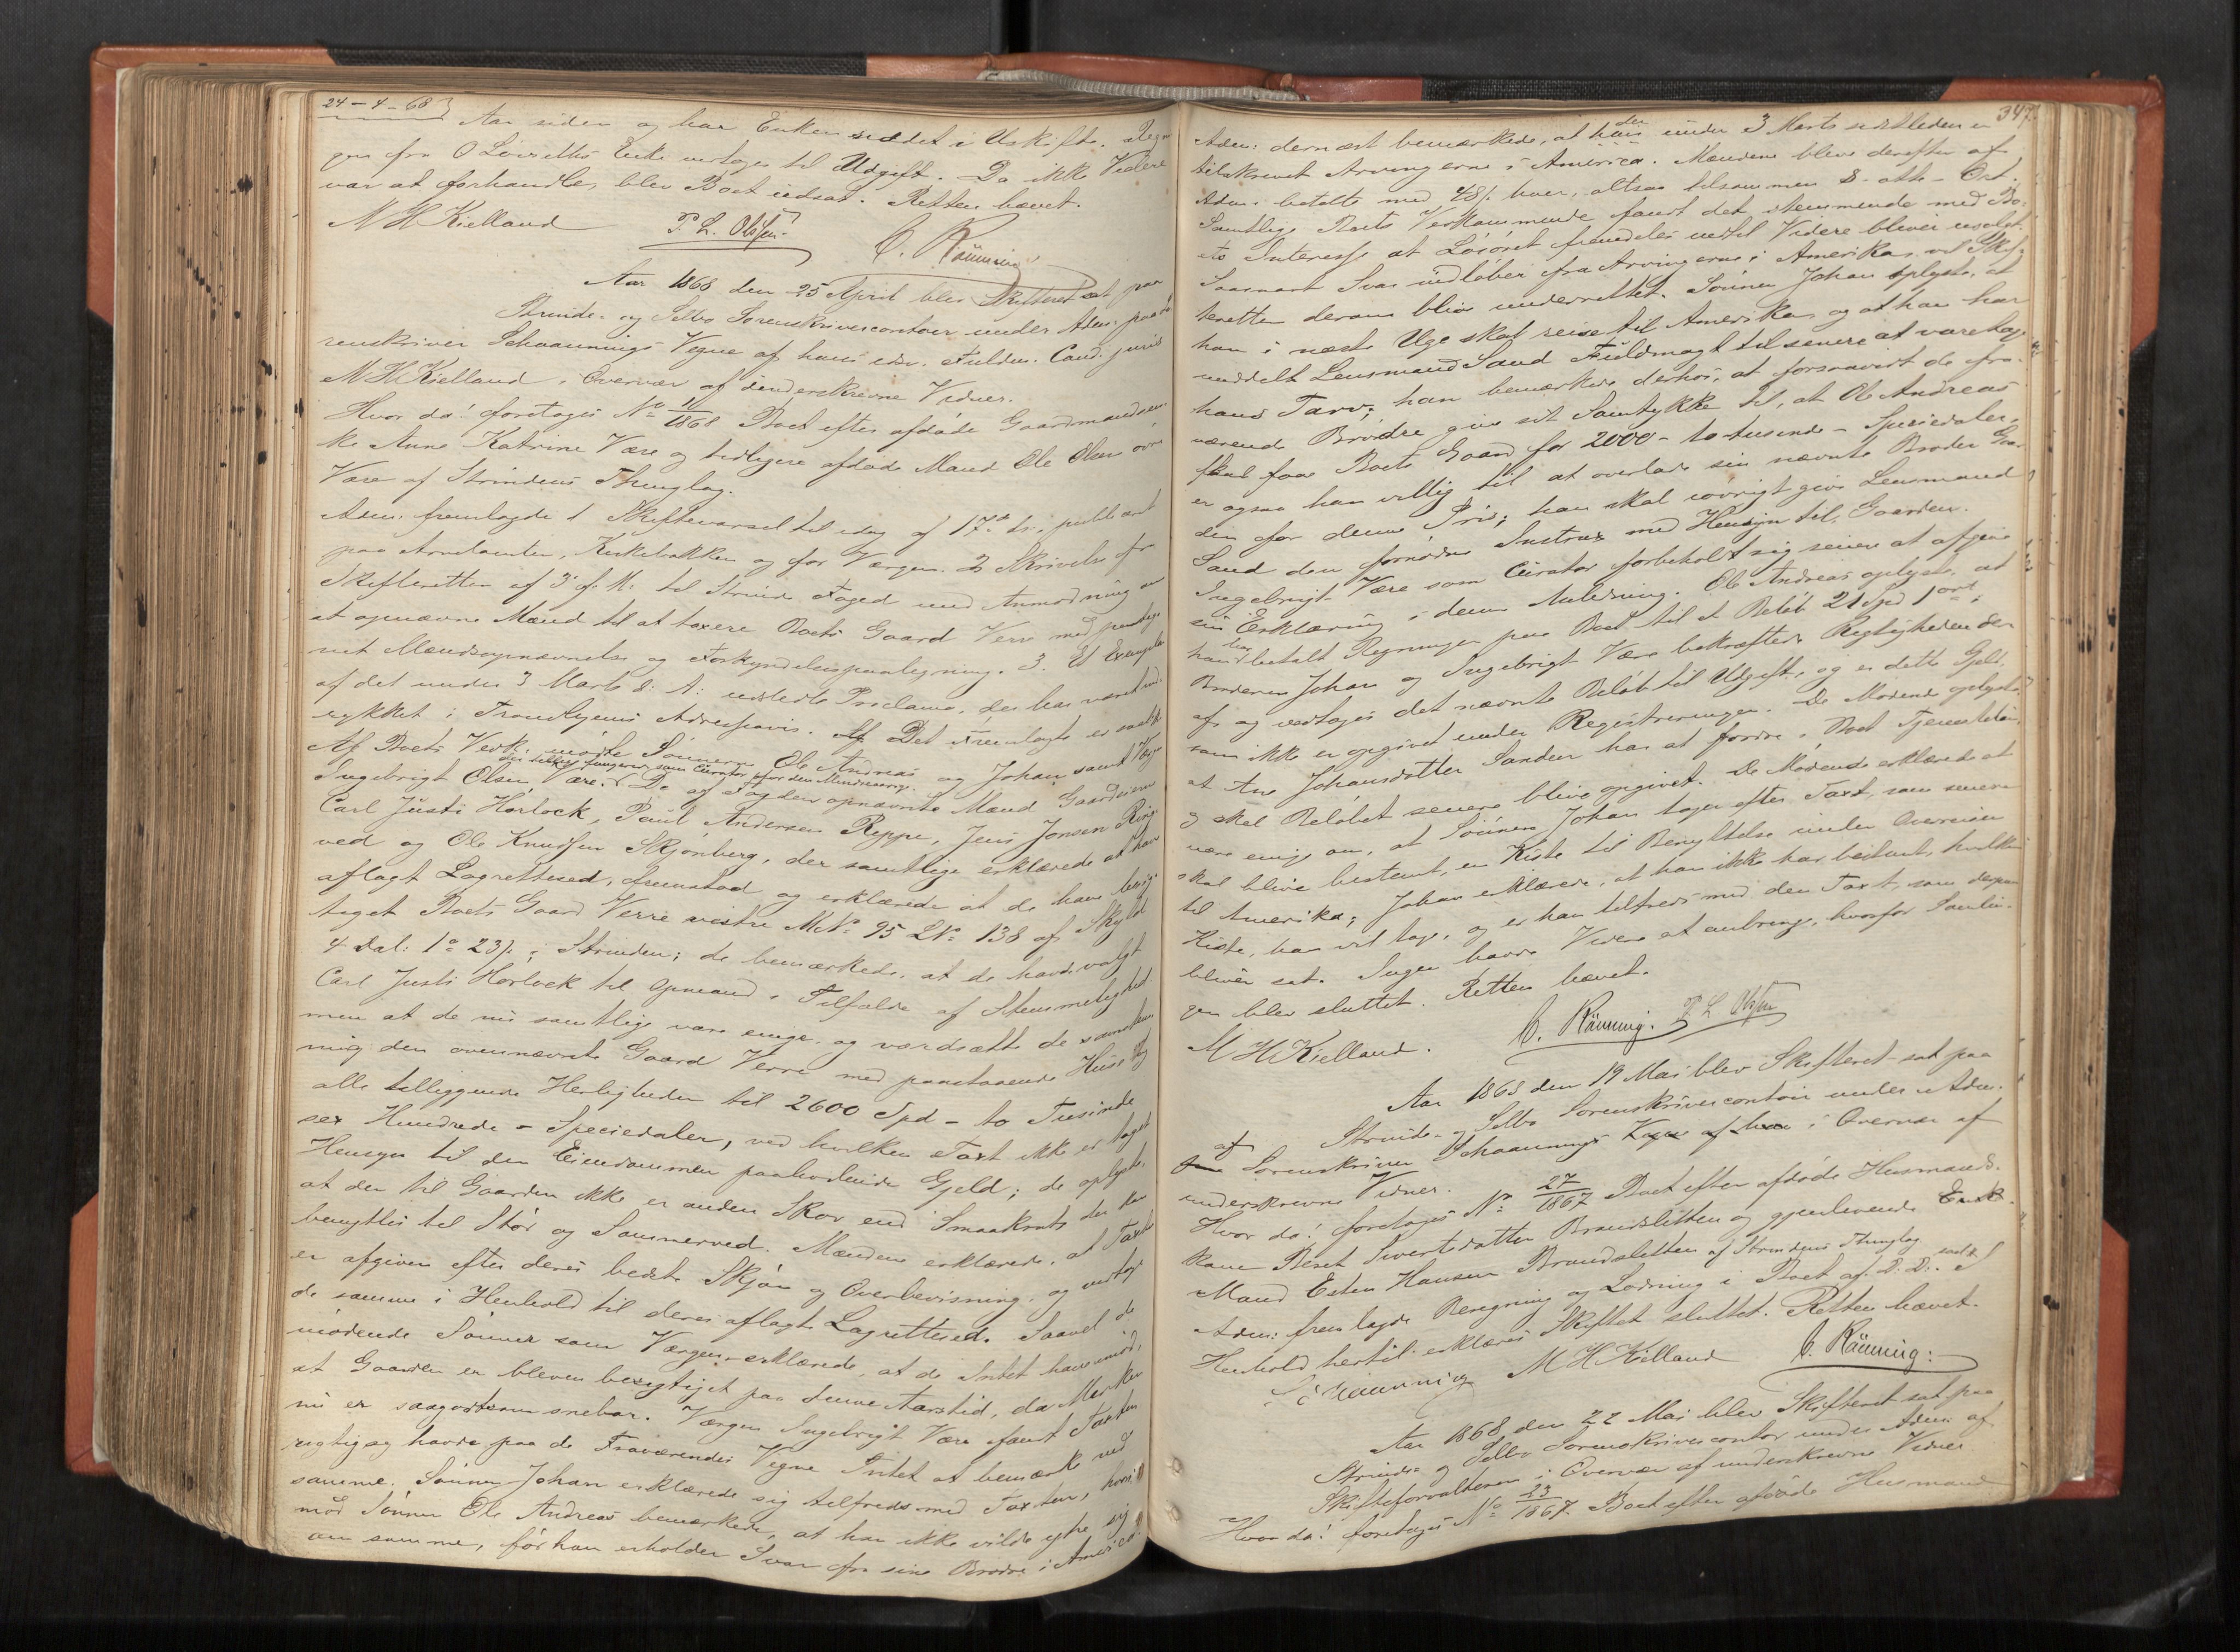 24-4-68
Aar siden og har Enken siddet i Uskifte. Regn
gen fra O Lövseths Enke vedtoges til Udgift. Da ikke Videre
var at forhandle, blev Boet udsat. Retten hævet.
N H Kielland P. L. Olsen C. Rönning
Aar 1868 den 25 April blev Skifteret sat paa
Strinde- og Selbo Sorenskrivercontoir under Adm. paa So
renskriver Schaannings Vegne af hans edsv. Fuldm. Cand. juris
N H Kielland i Overvær af underskrevne Vidner.
Hvor da! foretoges No 1/1868 Boet efter afdöde Gaardmandsen
ke Anne Katrine Være og tidligere afdöde Mand Ole Olsen övre
Være af Strindens Thinglag.
Adm. fremlagde 1 Skiftevarsel til idag af 17de ds., publiceret
paa Arnestanten, Kirkebakken og for Værgen. 2 Skrivelse fra
Skifteretten af 3 f. M. til Strinde Foged med Anmodning om
at opnævne Mænd til at taxere Boets Gaard Verre med paateg
net Mændsopnævnelse og Forkyndelsespaategning. 3. Et Exemplar
af det under 3 Marts d. A. udstedte Proclama, der har været ind
rykket i Trondhjems Adresseavis. Det Fremlagte er saal.
Af Boets Vedk. mödte Sönnerne Ole Andreas og Johan samt Værgen
der tillige fungerer som Curator for den Mindreaarige.
Ingebrigt Olsen Være. De af Fogden opnævnte Mænd Gaardmænd
Carl Justi Horlock, Paul Andersen Reppe, Jens Jonsen Ring
ved og Ole Knudsen Skjönberg, der samtlige erklærede at have
aflagt Lagrettesed, fremstod og erklærede at de have besig
tiget Boets Gaard Verre vestre MNo 95 LNo 138 af Skyld
4 Dal. 1o 23s. i Strinden; de bemærkede, at de havde valgt
Carl Justi Horlock til Opmand i Tilfælde af Stemmelighed
men at de nu samtlige vare enige, og værdsætte de
ning den ovennævnte Gaard Verre med paastaaende Huse og
alle tilliggende Herligheder til 2600 Spd - to Tusinde
sex Hundrede - Speciedaler, ved hvilken Taxt ikke er taget
Hensyn til den Eiendommen paahvilende Gjeld; de oplyste,
at der til Gaarden ikke er anden Skov end Smaakrat, der kan
benyttes til Stör og Sommerved. Mændene erklærede, at Taxten
er afgiven efter deres bedste Skjön og Overbevisning, og vedtoge
de samme i Henhold til deres aflagte Lagrettesed. Saavel de
mödende Sönner som Værgen erklærede, at de Intet have imod,
at Gaarden er bleven besigtiget paa denne Aarstid, da Marken
nu er saagodtsom snebar. Værgen Ingebrigt Være fandt Taxten
rigtig og havde paa de Fraværendes Vegne Intet at bemærke ved
samme. Sönnen Johan erklærede sig tilfreds med Taxten, hvori
mod Sönnen Ole Andreas bemærkede, at han ikke vilde ytre sig
om samme, för han erholder Svar fra sine Brödre i America.
347.
Adm. dernæst bemærkede, at der under 3 Marts sidstleden er
tilskrevet Arvingerne i America. Mændene bleve derefter af
Adm. betalte med 48s. hver, altsaa tilsammen 8 - otte - Ort.
Samtlige Boets Vedkommende fandt det stemmende med Bo
ets Interesse at Lösöret fremdeles indtil Videre bliver usolgt.
Saasnart Svar indlöber fra Arvingerne i Amerika, vil Skif
teretten derom blive underrettet. Sönnen Johan oplyste, at
han i næste Uge skal reise til Amerika, og at han har
meddelt Lensmand Sand Fuldmagt til senere at varetage
hans Tarv; han bemærkede derhos, at forsaavidt de fra
værende Brödre give sit Samtykke til, at Ole Andreas
skal faa Boets Gaard for 2000 - to tusinde - Speciedaler,
er ogsaa han villig til at overlade sin nævnte Broder Gaar
den for denne Pris; han skal iövrigt give Lensmand
Sand den fornödne Instrux med Hensyn til Gaarden.
Ingebrigt Være som Curator forbeholdt sig senere at afgive
sin Erklæring i denne Anledning. Ole Andreas oplyste, at
han har betalt Regninger paa Boet til et Belöb 21 Spd 1 ort;
Broderen Johan og Ingebrigt Være bekræftede Rigtigheden der
af og vedtoges det nævnte Belöb til Udgift, og er dette Gjeld,
som ikke er opgivet under Registreringen. De Mödende oplyste,
at Ane Johansdatter Sanden har at fordre i Boet Tjenestelön,
og skal Belöbet senere blive opgivet. De Mödende erklærede at
være enige om, at Sönnen Johan tager efter Taxt, som senere
skal blive bestemt, en Kiste til Benyttelse under Overreisen
til Amerika; Johan erklærede, at han ikke har bestemt, hvilken
Kiste, han vil tage, og er han tilfreds med den Taxt, som derpaa
bliver sat. Ingen havde Videre at anbringe, hvorfor Samlin
gen blev sluttet. Retten hævet.
N H Kielland. C. Rönning. P L Olsen
Aar 1868 den 19 Mai blev Skifteret sat paa
Strinde- og Selbo Sorenskrivercontoir under Adm.
af Sorenskriver Schaanning i Overvær af
underskrevne Vidner.
Hvor da! foretoges No 27/1867 Boet efter afdöde Husmands
kone Beret Sivertsdatter Brandsletten og gjenlevende
Mand Esten Hansen Brandsletten af Strindens Thinglag.
Adm. fremlagde Beregning og Lodning i Boet af D. D. saal. I
Henhold hertil erklæres Skiftet sluttet. Retten hævet.
Schaanning N H Kielland C. Rönning.
Aar 1868 den 22 Mai blev Skifteret sat paa
Strinde- og Selbo Sorenskrivercontor under Adm. af
Skifteforvalteren i Overvær af underskrevne Vidner
Hvor da! foretoges No 23/1867 Boet efter afdöde Husmand